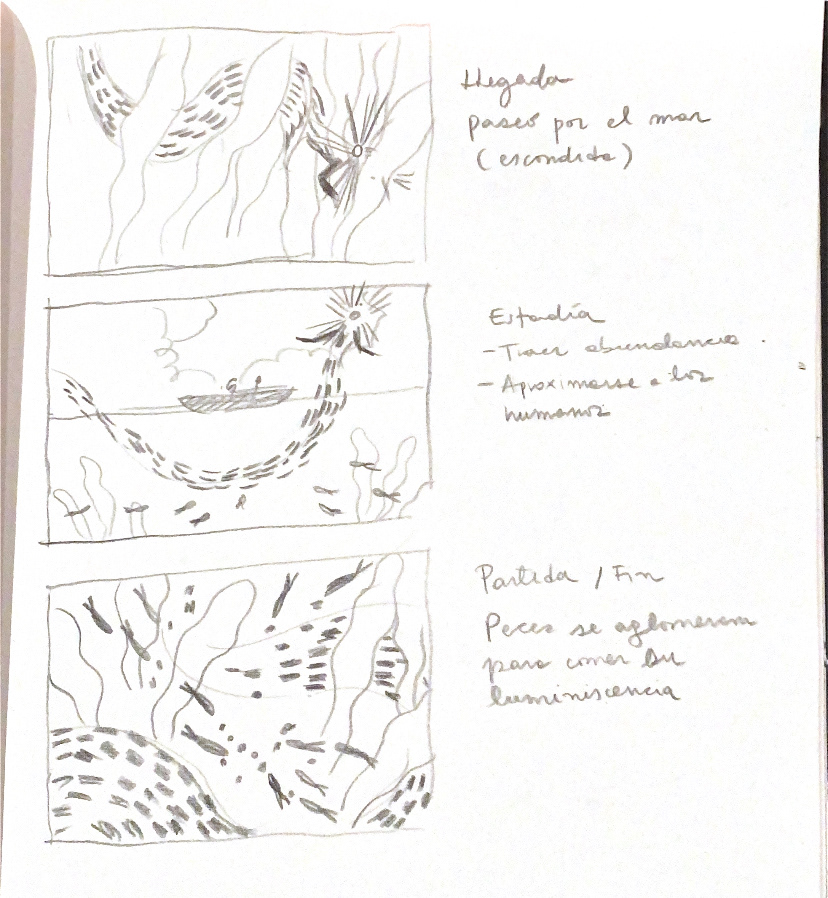 Llegada
paseo por el mar
(escondida)
Estadía
- Traer abundancia
- Aproximarse a los
humanos
Partida / Fin
Peces se aglomeran
para comer su
luminiscencia